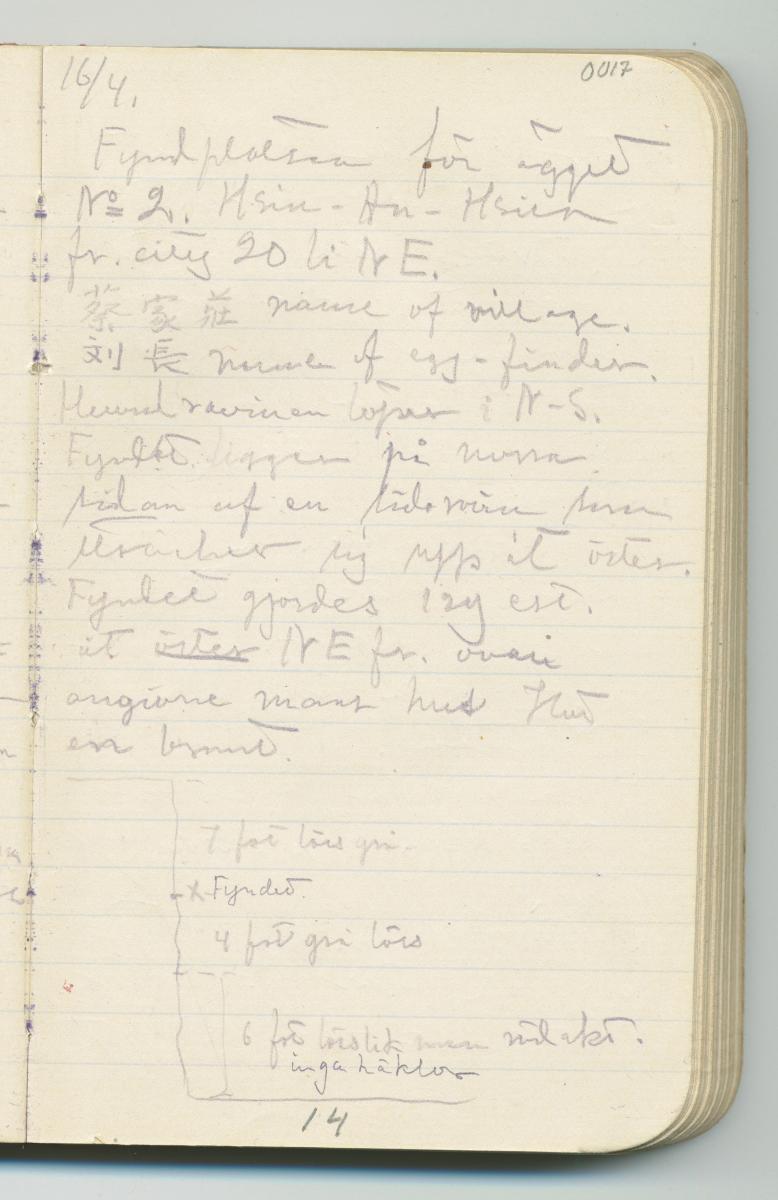 0017
16/4.
Fyndplatsen för ägget
No 2. Hsin-An-Hsien
fr. city 20 li NE.
蔡家莊 name of village.
刘長 name of egg-finder.
Huvudravinen löper i N-S.
Fyndet ligger på norra
sidan af en sidoravin som
sträcker sig upp åt öster.
Fyndet gjordes
åt öster NE fr. ovan
angivne mans hus Hus
en brant.
7 fot löss grå.
x Fyndet.
4 fot grå löss
6 fot lösslik men rödakt.
inga häklor
14